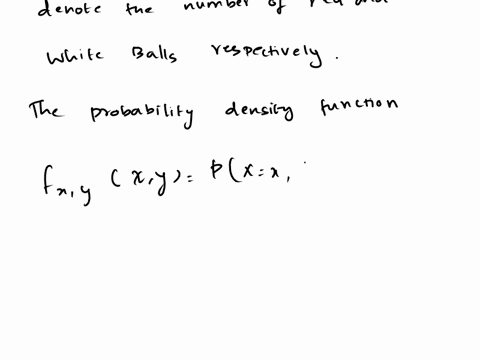 denote the number of red and
White Balls respectively.
The probability density function
fx,y (x,y) = P(X=x,